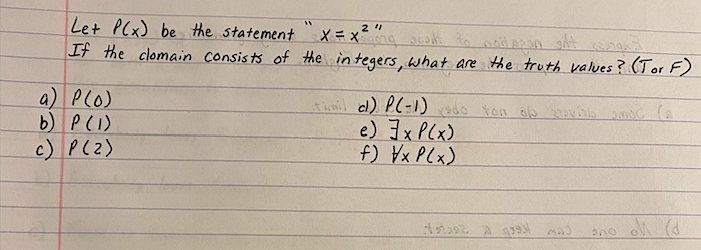 Let P(x) be the statement "x = x²"
If the domain consists of the integers, what are the truth values? (T or F)
a) P(0)
b) P(1)
c) P(2)
d) P(-1)
e) ∃x P(x)
f) ∀x P(x)